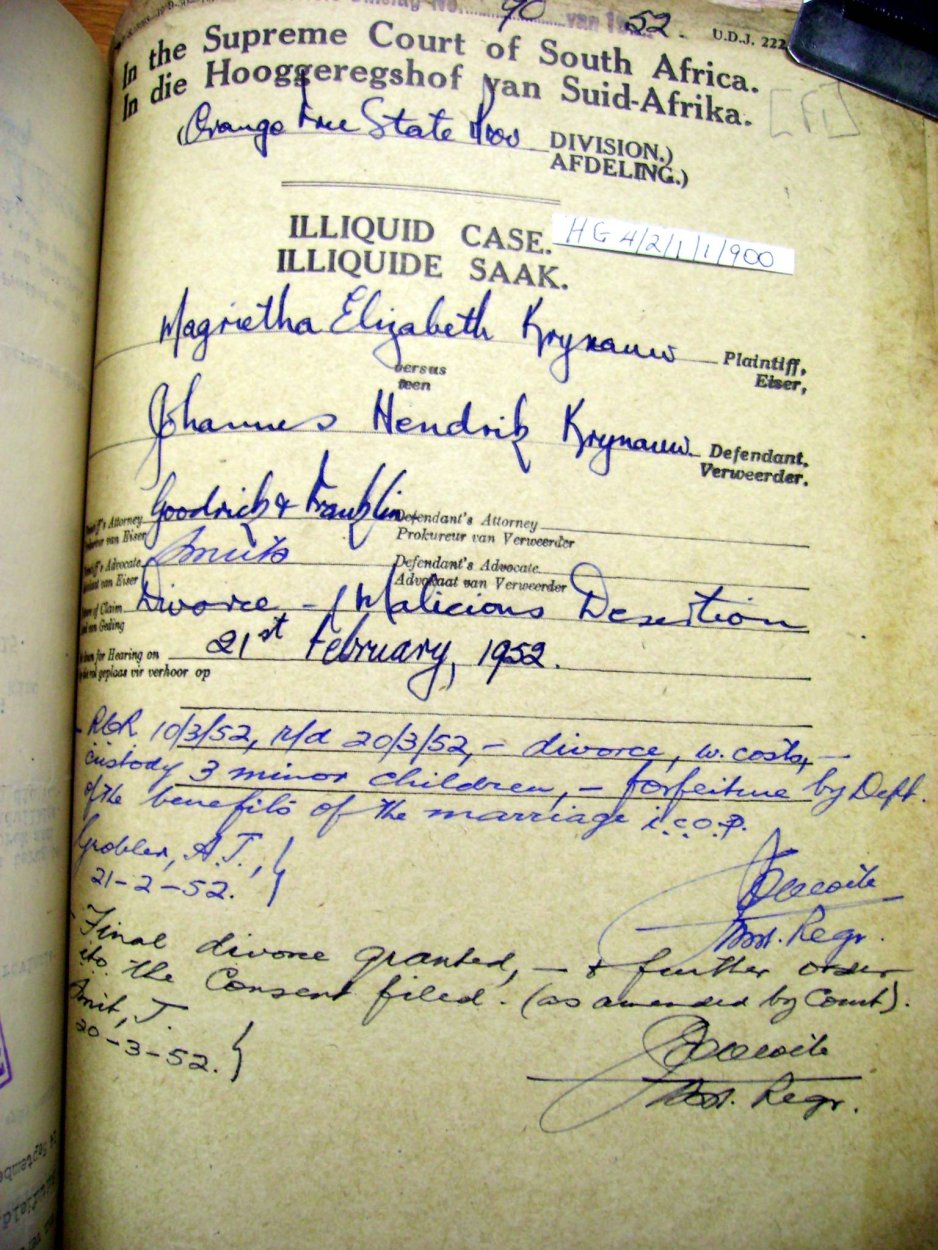 No. 40 van 1952.
U.D.J. 222
In the Supreme Court of South Africa.
In die Hooggeregshof van Suid-Afrika.
(Orange Free State Prov DIVISION.)
AFDELING.)
ILLIQUID CASE.
HG 4/2/1/1/900
ILLIQUIDE SAAK.
Magrietha Elizabeth Krynauw Plaintiff,
Eiser,
versus
teen
Johannes Hendrik Krynauw Defendant.
Verweerder.
Attorney Goodrick & Franklin Defendant's Attorney
van Eiser Prokureur van Verweerder
Advocate Smuts Defendant's Advocate
van Eiser Advokaat van Verweerder
of Claim Divorce, - Malicious Desertion
van Geding
for Hearing on 21st February, 1952.
geplaas vir verhoor op
- RNR 10/3/52, r/d 20/3/52, - divorce, w. costs, -
custody 3 minor children, - forfeiture by Deft.
of the benefits of the marriage i.c.o.p.
Grobler, A.J., }
21-2-52.
Asst. Regr.
- Final divorce granted, - & further order
ito the Consent filed. (as amended by Court).
Smit, J. }
20-3-52.
Asst. Regr.